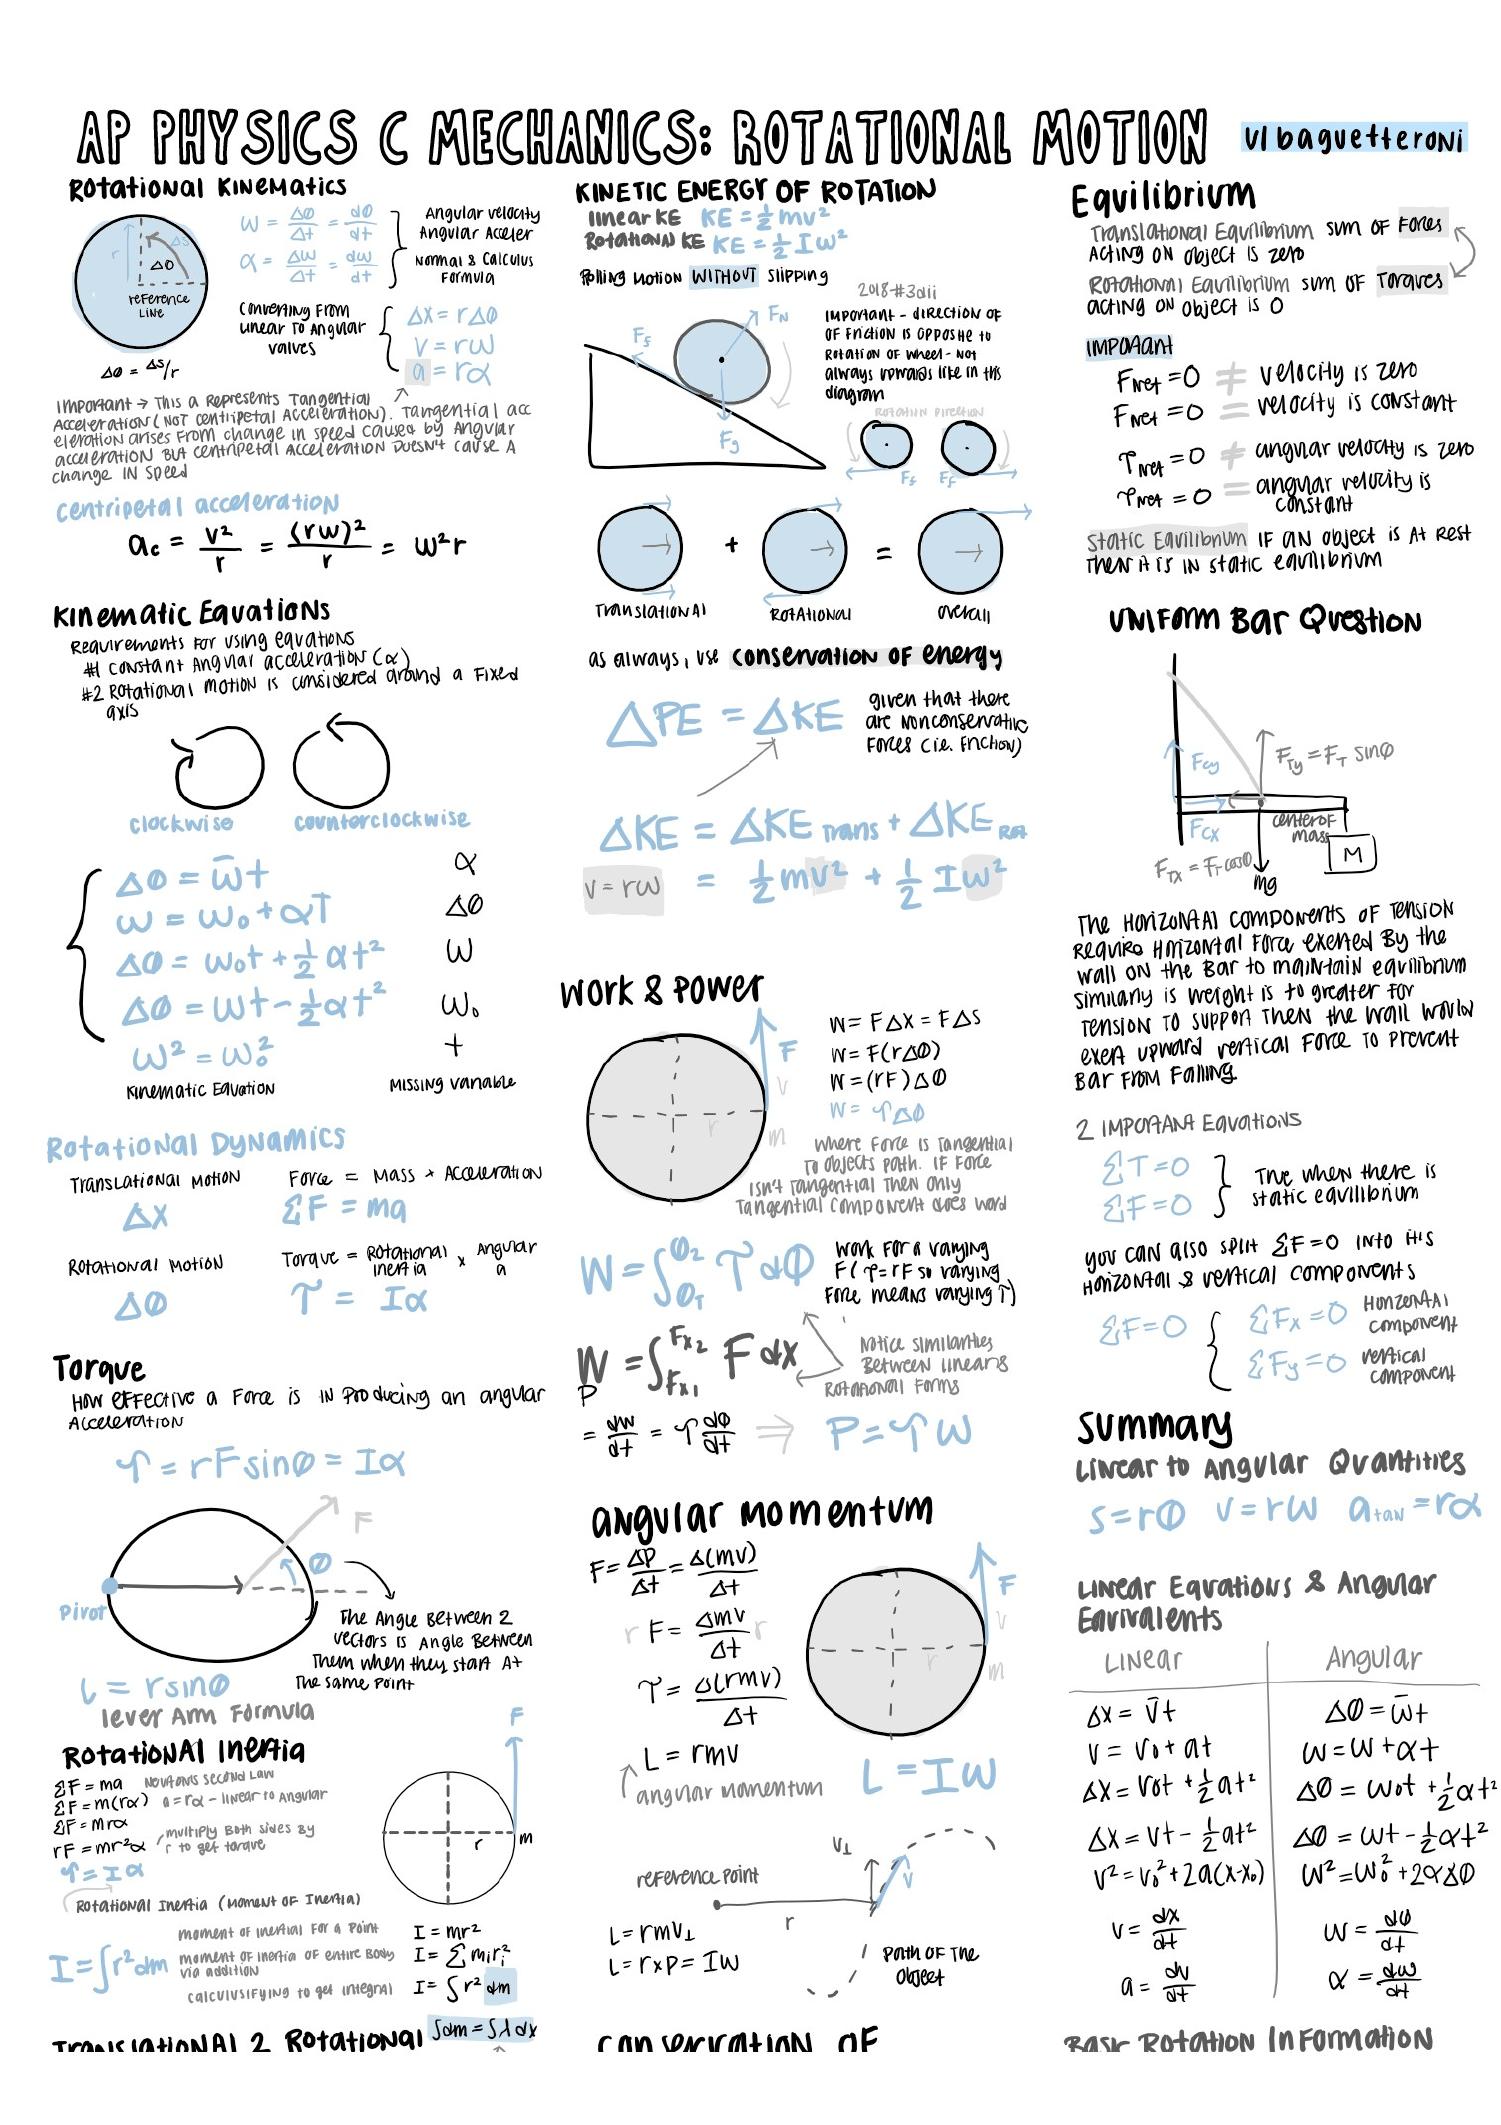 AP PHYSICS C MECHANICS: ROTATIONAL MOTION
u/baguetteroni
ROTATIONAL KINEMATICS
r
ΔS
ΔØ
reference
LINE
ΔØ = ΔS/r
ω = ΔØ/Δt = dØ/dt
α = Δω/Δt = dω/dt
Angular velocity
Angular Acceler
Normal & Calculus
Formula
Converting From
Linear to Angular
valves
Δx = rΔØ
v = rω
a = rα
Important → This a Represents Tangential
Acceleration (NOT Centripetal Acceleration). Tangential acc
eleration arises from change in speed caused by Angular
acceleration BUT centripetal Acceleration Doesn't cause A
change IN speed
centripetal acceleration
ac = v²/r = (rω)²/r = ω²r
Kinematic Equations
Requirements for using equations
#1 constant Angular acceleration (α)
#2 Rotational motion is considered around a Fixed
axis
clockwise
counterclockwise
ΔØ = ω̄t
α
ω = ω₀ + αT
ΔØ
ΔØ = ω₀t + ½αt²
ω
ΔØ = ωt - ½αt²
ω₀
ω² = ω₀²
t
Kinematic Equation
Missing variable
Rotational Dynamics
Translational Motion
Force = Mass × Acceleration
Δx
ΣF = ma
Rotational Motion
Torque = Rotational Inertia × Angular a
ΔØ
τ = Iα
Torque
How effective a Force is IN Producing an angular
Acceleration
τ = rFsinØ = Iα
F
Ø
Pivot
The Angle Between 2
vectors is Angle Between
Them when they start At
The same Point
l = rsinØ
lever Arm Formula
Rotational Inertia
ΣF = ma Newtons second Law
ΣF = m(rα) a = rα - linear to Angular
ΣF = mrα
rF = mr²α multiply Both sides By
r to get torque
τ = Iα
Rotational Inertia (Moment of Inertia)
F
r
m
I = ∫r²dm
moment of inertial For a Point
I = mr²
moment of inertia of entire Body
via addition
I = Σmiri²
calculusifying to get integral
I = ∫r² dm
TRANSLATIONAL 2 ROTATIONAL
∫dm = ∫λdx
KINETIC ENERGY OF ROTATION
linear KE KE = ½mv²
Rotational KE KE = ½Iω²
Rolling Motion WITHOUT Slipping
Ff
FN
Fg
2018 #3aii
Important - direction of
of friction is opposite to
rotation of wheel - not
always upwards like in this
diagram
Rotation Direction
Ff
Ff
+
=
Translational
Rotational
overall
as always, use conservation of energy
ΔPE = ΔKE
given that there
are nonconservative
Forces (i.e. friction)
ΔKE = ΔKE Trans + ΔKE Rot
v = rω
= ½mv² + ½Iω²
Work & Power
F
v
r
m
W = FΔx = FΔs
W = F(rΔØ)
W = (rF)ΔØ
W = τΔØ
where Force is Tangential
to objects path. If Force
isn't Tangential then only
Tangential component does word
W = ∫Ø₁Ø₂ τdØ
Work For a varying
F (τ = rF so varying
Force means varying T)
W = ∫Fx1Fx2 F dx
Notice similarities
Between linear &
Rotational Forms
P
= dw/dt = τ dØ/dt ⇒ P = τω
Angular Momentum
F = Δp/Δt = Δ(mv)/Δt
r F = Δmv/Δt r
τ = Δ(rmv)/Δt
L = rmv
angular momentum
F
v
r
m
L = Iω
reference point
r
v⊥
v
L = rmv⊥
L = r×p = Iω
Path of the
object
Conservation of
Equilibrium
Translational Equilibrium sum of Fores
Acting on object is zero
Rotational Equilibrium sum of Torques
acting on object is 0
Imporant
Fnet = 0 ≠ velocity is zero
Fnet = 0 = velocity is constant
τnet = 0 ≠ angular velocity is zero
τnet = 0 = angular velocity is
constant
Static Equilibrium If an object is At Rest
Then it is in static equilibrium
Uniform Bar Question
Fcy
FTy = FT sinØ
Fcx
center of
mass
M
FTx = FT cosØ
mg
The Horizontal components of Tension
require Horizontal Force exerted By the
wall on the Bar to maintain equilibrium
similarly is weight is to greater for
Tension to support then the wall would
exert upward vertical Force to prevent
Bar From Falling
2 Important Equations
ΣT = 0
ΣF = 0
True when there is
static equilibrium
you can also split ΣF = 0 into its
Horizontal & vertical components
ΣF = 0
ΣFx = 0 Horizontal
component
ΣFy = 0 vertical
component
Summary
Linear to Angular Quantities
s = rØ v = rω atan = rα
Linear Equations & Angular
Equivalents
Linear
Angular
Δx = v̄t
ΔØ = ω̄t
v = v₀ + at
ω = ω + αt
Δx = v₀t + ½at²
ΔØ = ω₀t + ½αt²
Δx = vt - ½at²
ΔØ = ωt - ½αt²
v² = v₀² + 2a(x-x₀)
ω² = ω₀² + 2αΔØ
v = dx/dt
ω = dØ/dt
a = dv/dt
α = dω/dt
Basic Rotation Information